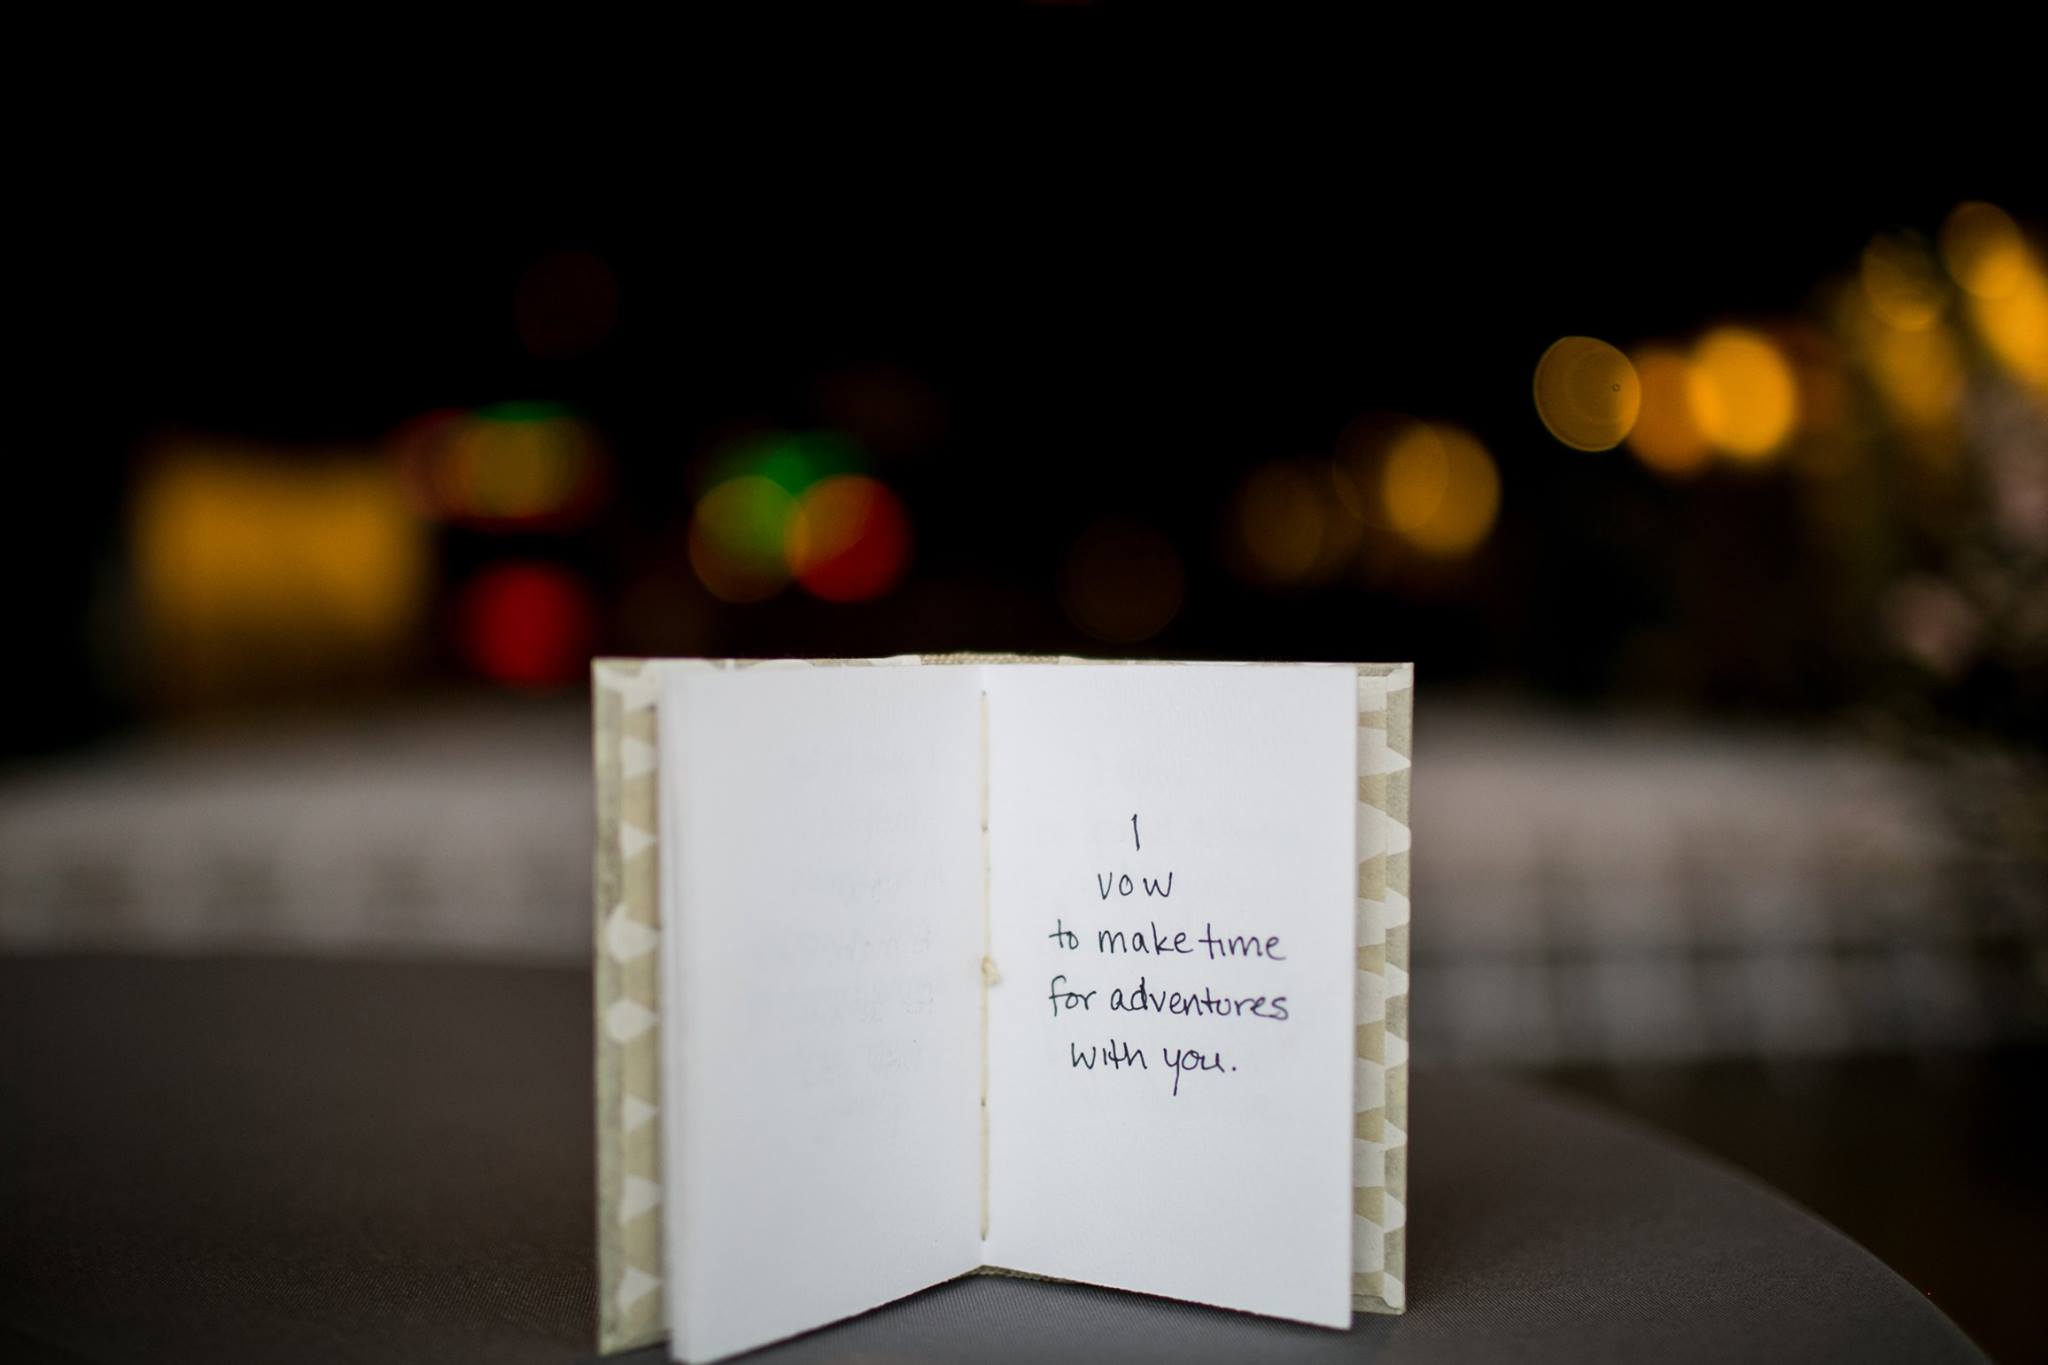 I
vow
to make time
for adventures
with you.